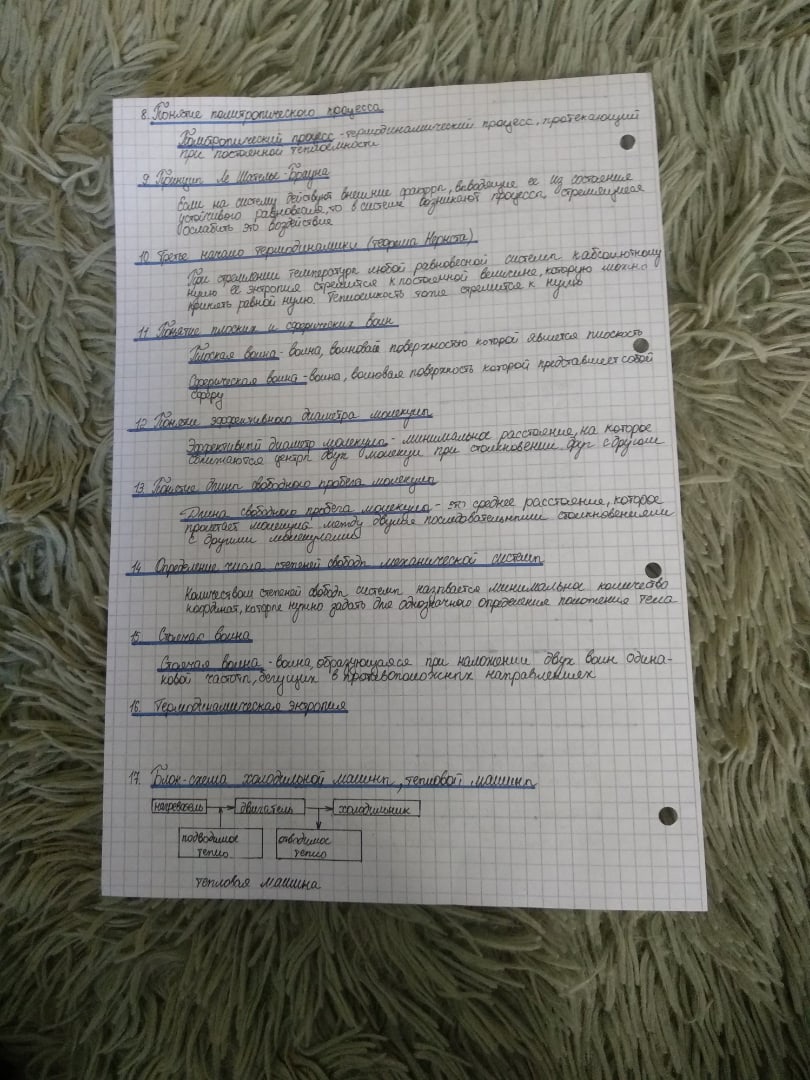 8. Понятие политропического процесса
Политропический процесс - термодинамический процесс, протекающий
при постоянной теплоёмкости
9. Принцип Ле Шателье-Брауна
Если на систему действуют внешние факторы, выводящие ее из состояния
устойчивого равновесия, то в системе возникают процессы, стремящиеся
ослабить это воздействие
10. Третье начало термодинамики (теорема Нернста)
При стремлении температуры любой равновесной системы к абсолютному
нулю её энтропия стремится к постоянной величине, которую можно
принять равной нулю. Теплоёмкость тоже стремится к нулю
11. Понятие плоских и сферических волн
Плоская волна - волна, волновой поверхностью которой является плоскость
Сферическая волна - волна, волновая поверхность которой представляет собой
сферу
12. Понятие эффективного диаметра молекулы
Эффективный диаметр молекулы - минимальное расстояние, на которое
сближаются центры двух молекул при столкновении друг с другом
13. Понятие длины свободного пробега молекулы
Длина свободного пробега молекулы - это среднее расстояние, которое
пролетает молекула между двумя последовательными столкновениями
с другими молекулами
14. Определение числа степеней свободы механической системы
Количеством степеней свободы системы называется минимальное количество
координат, которые нужно задать для однозначного определения положения тела
15. Стоячая волна
Стоячая волна - волна, образующаяся при наложении двух волн одина-
ковой частоты, бегущих в противоположных направлениях
16. Термодинамическая энтропия
17. Блок-схема холодильной машины, тепловой машины
нагреватель двигатель холодильник
подводимое отводимое
тепло тепло
тепловая машина